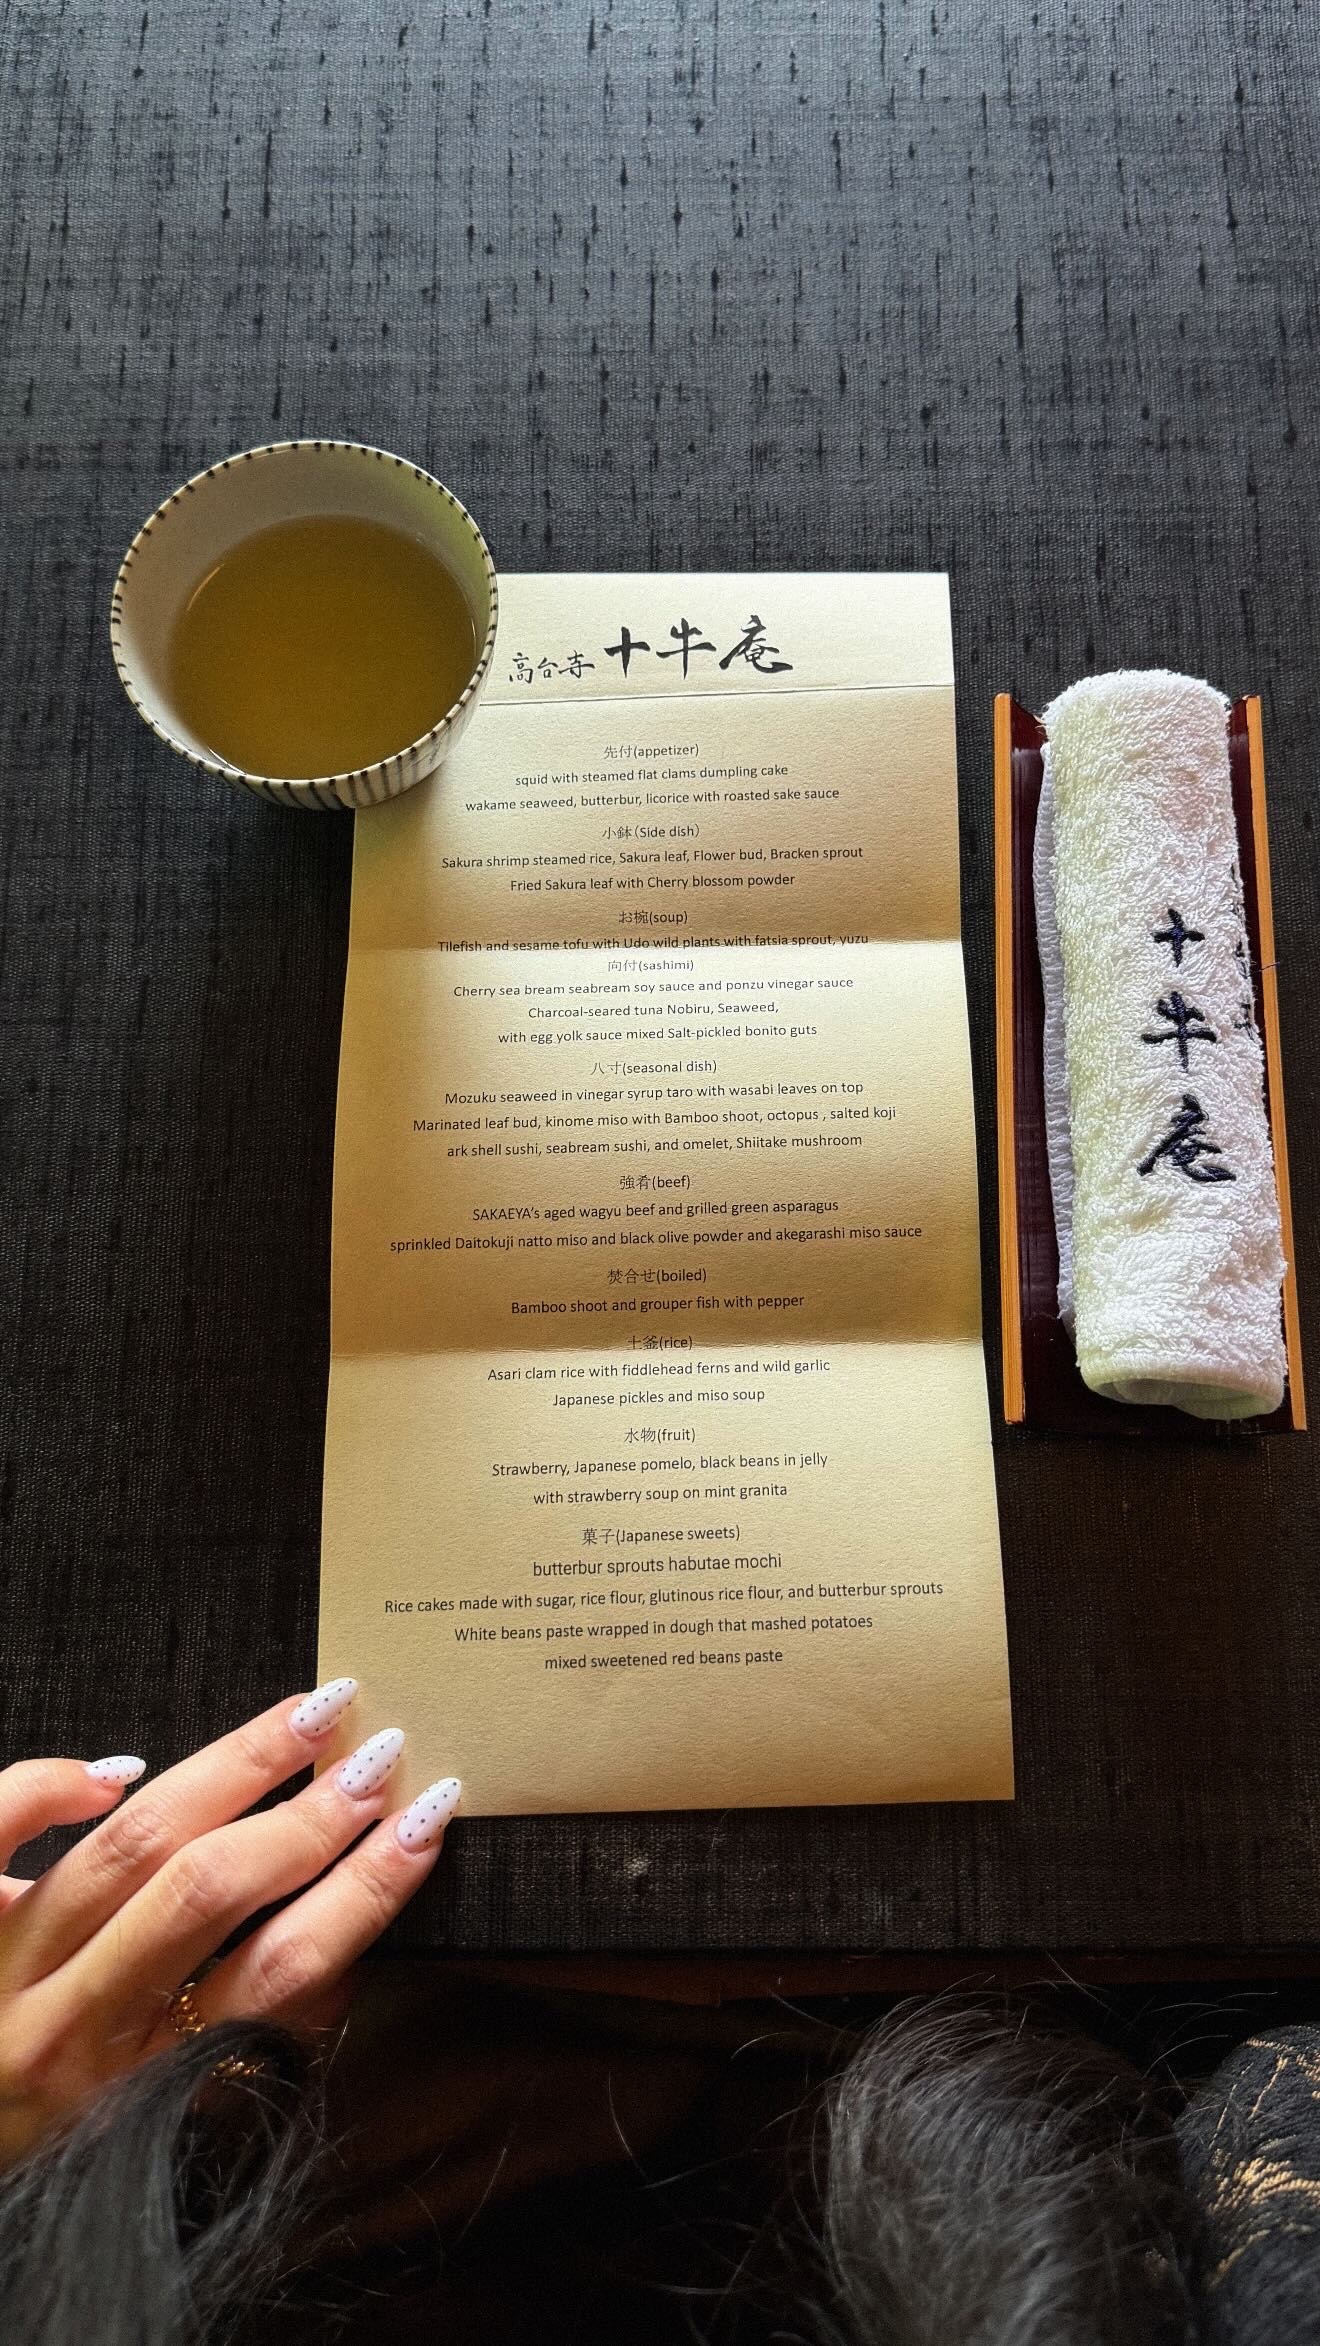 高台寺 十牛庵
先付(appetizer)
squid with steamed flat clams dumpling cake
wakame seaweed, butterbur, licorice with roasted sake sauce
小鉢(Side dish)
Sakura shrimp steamed rice, Sakura leaf, Flower bud, Bracken sprout
Fried Sakura leaf with Cherry blossom powder
お椀(soup)
Tilefish and sesame tofu with Udo wild plants with fatsia sprout, yuzu
向付(sashimi)
Cherry sea bream seabream soy sauce and ponzu vinegar sauce
Charcoal-seared tuna Nobiru, Seaweed,
with egg yolk sauce mixed Salt-pickled bonito guts
八寸(seasonal dish)
Mozuku seaweed in vinegar syrup taro with wasabi leaves on top
Marinated leaf bud, kinome miso with Bamboo shoot, octopus , salted koji
ark shell sushi, seabream sushi, and omelet, Shiitake mushroom
強肴(beef)
SAKAEYA's aged wagyu beef and grilled green asparagus
sprinkled Daitokuji natto miso and black olive powder and akegarashi miso sauce
焚合せ(boiled)
Bamboo shoot and grouper fish with pepper
土釜(rice)
Asari clam rice with fiddlehead ferns and wild garlic
Japanese pickles and miso soup
水物(fruit)
Strawberry, Japanese pomelo, black beans in jelly
with strawberry soup on mint granita
菓子(Japanese sweets)
butterbur sprouts habutae mochi
Rice cakes made with sugar, rice flour, glutinous rice flour, and butterbur sprouts
White beans paste wrapped in dough that mashed potatoes
mixed sweetened red beans paste
十牛庵